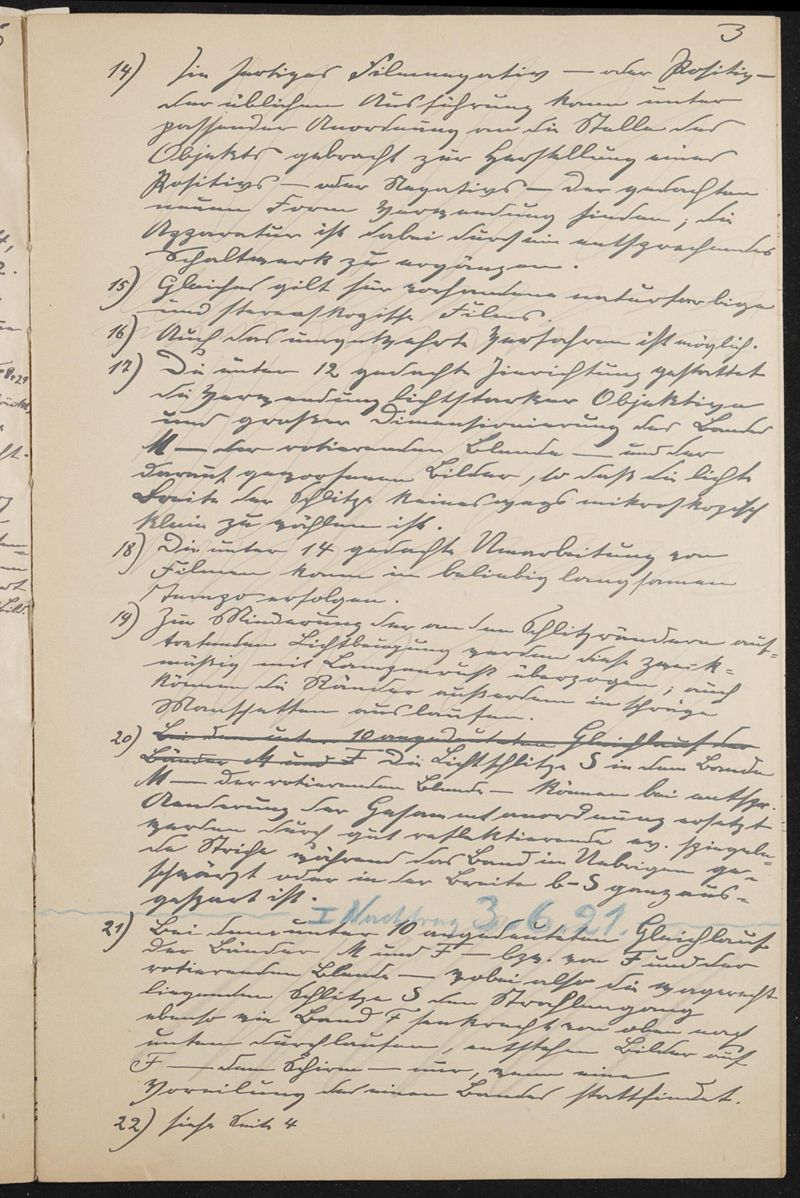 3
14) Ein fertiges Filmnegativ — oder Positiv —
der üblichen Ausführung kann unter
passender Anordnung an die Stelle des
Objekts gebracht zur Herstellung eines
Positivs — oder Negativs — der gedachten
neuen Form Verwendung finden; die
Apparatur ist dabei durch ein entsprechendes
Schaltwerk zu ergänzen.
15) Gleiches gilt für vorhandene naturfarbige
und stereoskopische Films.
16) Auch das umgekehrte Verfahren ist möglich.
17) Die unter 12 gedachte Einrichtung gestattet
die Verwendung lichtstarker Objektive
und großer Dimensionierung des Bandes
M — der rotierenden Blende — und der
darauf geworfenen Bilder, so daß die lichte
Breite der Schlitze keineswegs mikroskopisch
klein zu wählen ist.
18) Die unter 14 gedachte Umarbeitung von
Filmen kann in beliebig langsamem
Tempo erfolgen.
19) Zur Minderung der an den Schlitzrändern auf=
tretenden Lichtbeugung werden diese zweck=
mäßig mit Lampenruß überzogen; auch
können die Ränder außerdem in schräge
Manschetten auslaufen.
20) Bei dem unter 10 angedeuteten Gleichlauf der
Bänder M und F Die Lichtschlitze S in dem Bande
M — der rotierenden Blende — können bei entspr.
Aenderung der Gesammtanordnung ersetzt
werden durch gut reflektierende ev. spiegeln=
de Striche während das Band im Uebrigen ge=
schwärzt oder in der Breite b-S ganz aus=
gespart ist.
I Nachtrag 3.6.21.
21) Bei dem unter 10 angedeuteten Gleichlauf
der Bänder M und F — bzw. von F und der
rotierenden Blende — wobei also die wagerecht
liegenden Schlitze S den Strahlengang
ebenso wie Band F senkrecht von oben nach
unten durchlaufen, entstehen Bilder auf
F — dem Schirm — nur, wenn eine
Voreilung des einen Bandes stattfindet.
22) siehe Seite 4